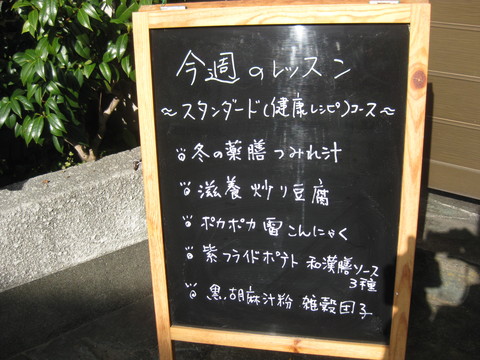 今週のレッスン
～スタンダード(健康レシピ)コース～
冬の薬膳つみれ汁
滋養 炒り豆腐
ポカポカ 雷こんにゃく
紫フライドポテト 和漢膳ソース
3種
黒胡麻汁粉 雑穀団子